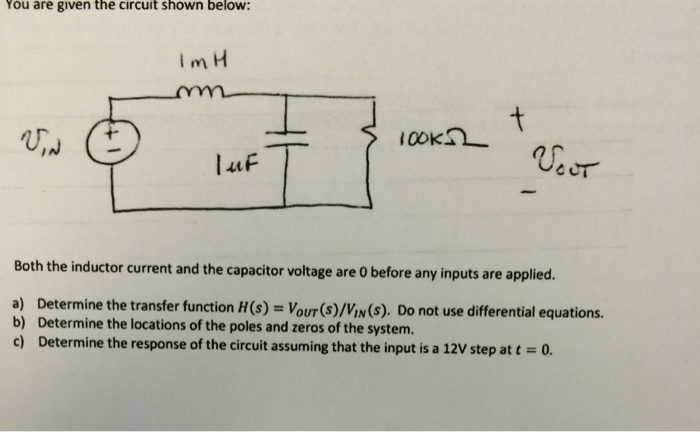 You are given the circuit shown below:
1mH
VIN
+
1uF
100KΩ
+
VOUT
Both the inductor current and the capacitor voltage are 0 before any inputs are applied.
a) Determine the transfer function H(s) = VOUT(s)/VIN(s). Do not use differential equations.
b) Determine the locations of the poles and zeros of the system.
c) Determine the response of the circuit assuming that the input is a 12V step at t = 0.